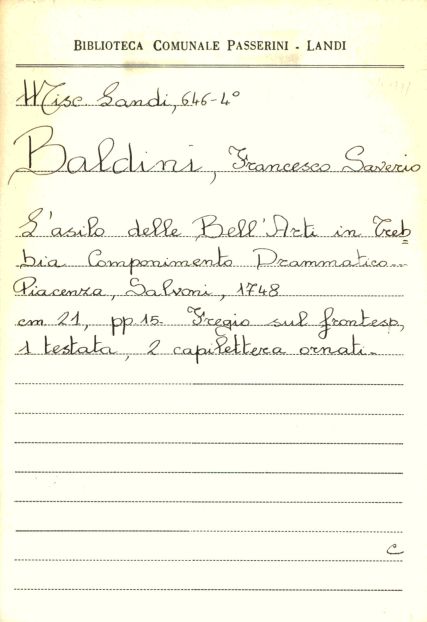 BIBLIOTECA COMUNALE PASSERINI - LANDI
Misc. Landi, 646-4°
Baldini, Francesco Saverio
L'asilo delle Bell'Arti in Treb=
bia Componimento Drammatico...
Piacenza, Salvoni, 1748
cm 21, pp. 15. Fregio sul frontesp.,
1 testata, 2 capilettera ornati.
C